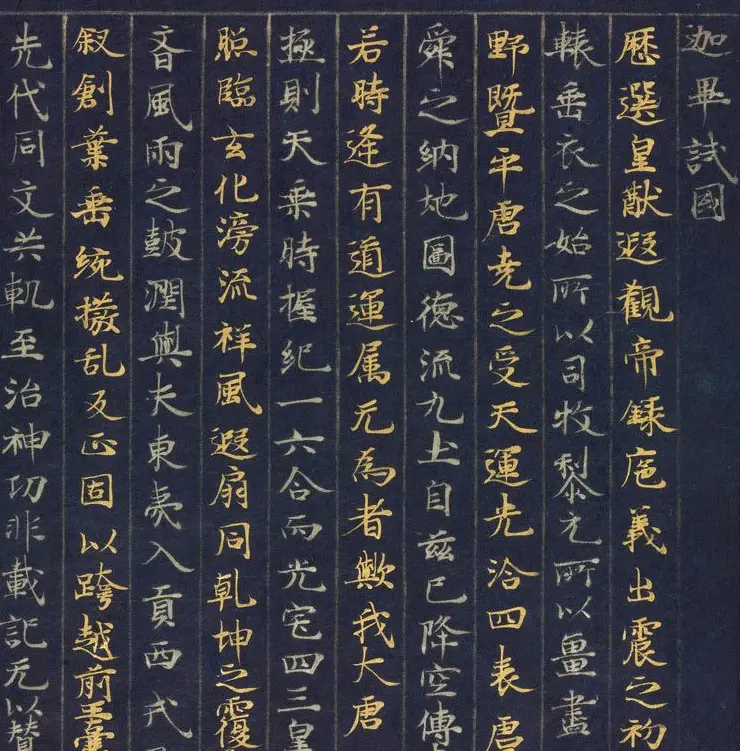 迦畢試國
歷選皇猷遐觀帝録庖義出震之初
轅垂衣之始所以司牧黎元所以畺畫
野暨乎唐尭之受天運光洽四表唐
舜之納地圖德流九土自兹已降空傳
若時逢有道運属无為者歟我大唐
極則天乗時握紀一六合而光宅四三皇
照臨玄化滂流祥風遐扇同乾坤之覆
齊風雨之鼓潤與夫東夷入貢西戎
叙創業垂統撥乱反正固以跨越前王
先代同文共軌至治神功非載記无以賛